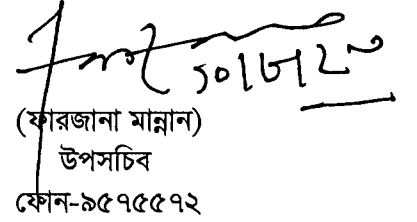 (ফারজানা মান্নান)
উপসচিব
ফোন-৯৫৭৫৫৭২